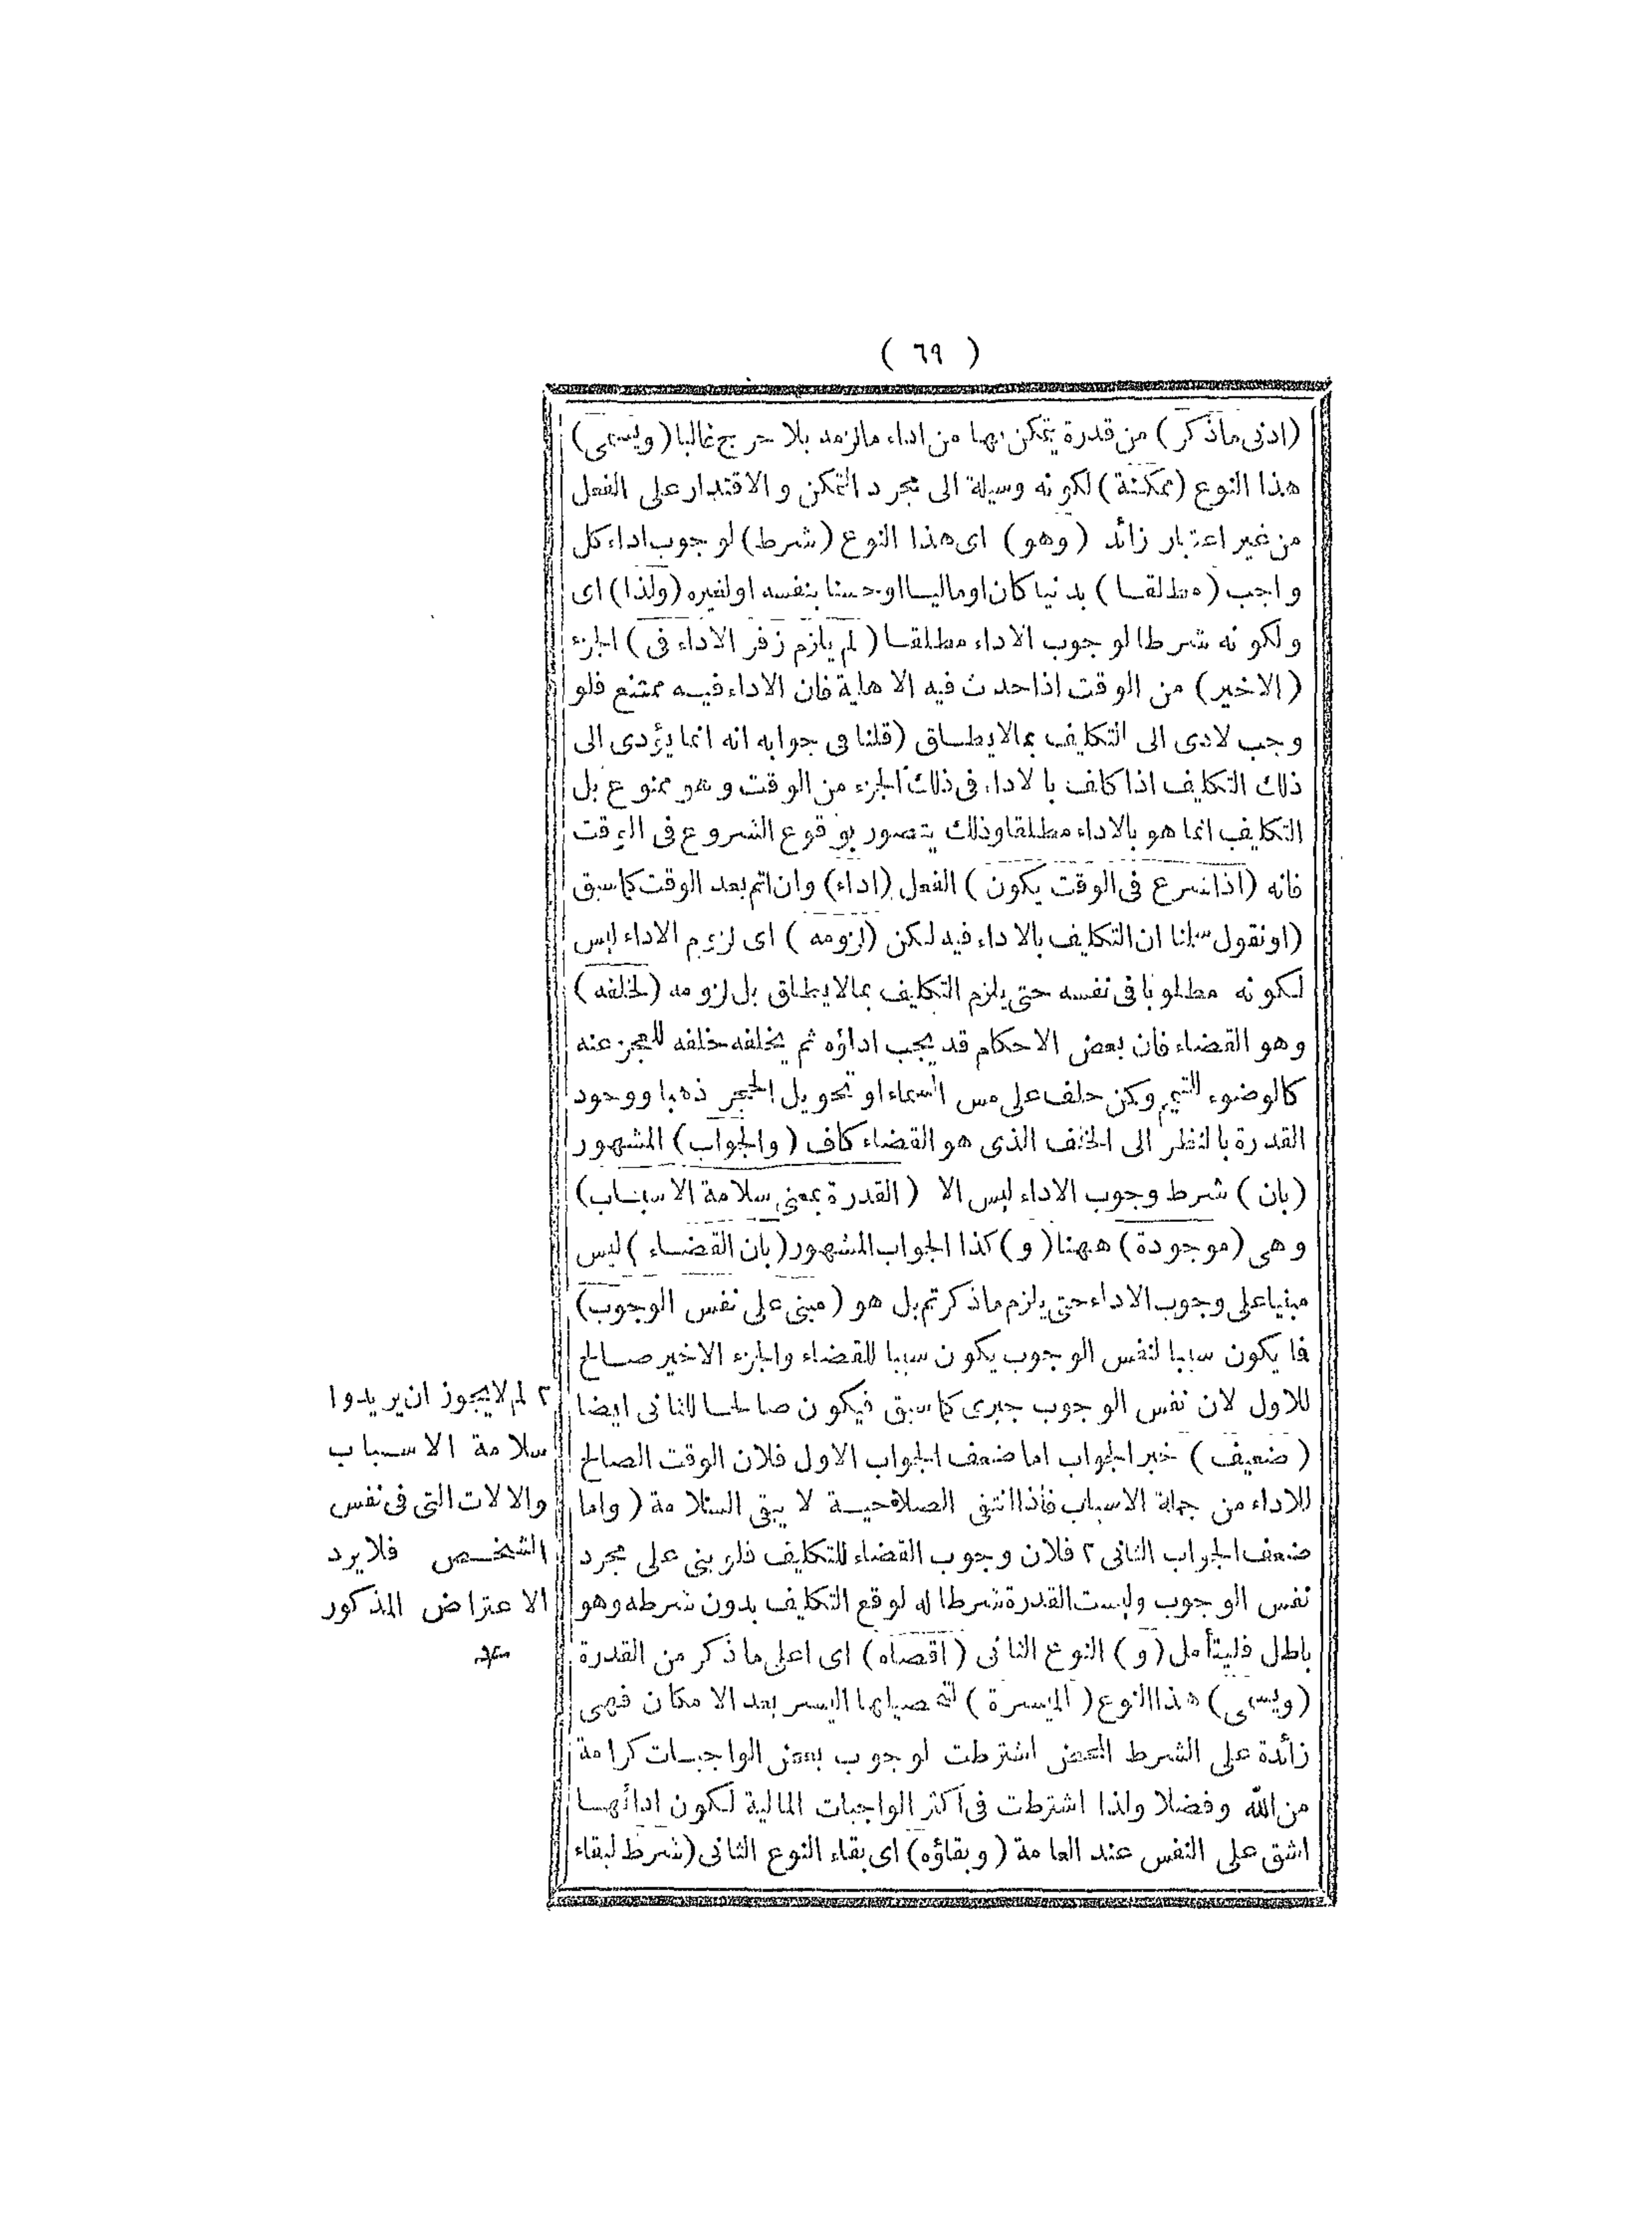 ( ٦٩ )
(ادنى ماذكر) من قدرة يتمكن بها من اداء مالزمه بلا حرج غالبا (ويسمى)
هذا النوع (ممكنة) لكونه وسيلة الى مجرد التمكن والاقتدار على الفعل
من غير اعتبار زائد (وهو) اى هذا النوع (شرط) لوجوب اداء كل
واجب (مطلقا) بدنيا كان او ماليا او حسنا بنفسه او لغيره (ولذا) اى
ولكونه شرطا لوجوب الاداء مطلقا (لم يلزم زفر الاداء فى) الجزء
(الاخير) من الوقت اذا حدث فيه الاهلية فان الاداء فيه ممتنع فلو
وجب لادى الى التكليف بمالايطاق (قلنا فى جوابه انه انما يؤدى الى
ذلك التكليف اذا كلف بالاداء فى ذلك الجزء من الوقت وهو ممنوع بل
التكليف انما هو بالاداء مطلقا وذلك يتصور بوقوع الشروع فى الوقت
فانه (اذا شرع فى الوقت يكون) الفعل (اداء) وان اتم بعد الوقت كما سبق
(او نقول سلمنا ان التكليف بالاداء فيه لكن (لزومه) اى لزوم الاداء ليس
لكونه مطلوبا فى نفسه حتى يلزم التكليف بمالايطاق بل لزومه (لخلفه)
وهو القضاء فان بعض الاحكام قد يجب اداؤه ثم يخلفه خلفه للعجز عنه
كالوضوء للتيمم وكمن حلف على مس السماء او تحويل الحجر ذهبا ووجود
القدرة بالنظر الى الخلف الذى هو القضاء كاف (والجواب) المشهور
(بان) شرط وجوب الاداء ليس الا (القدرة بمعنى سلامة الاسباب)
وهى (موجودة) ههنا (و) كذا الجواب المشهور (بان القضاء) ليس
مبنيا على وجوب الاداء حتى يلزم ماذكرتم بل هو (مبنى على نفس الوجوب)
فما يكون سببا لنفس الوجوب يكون سببا للقضاء والجزء الاخير صالح
للاول لان نفس الوجوب جبرى كما سبق فيكون صالحا للثانى ايضا
(ضعيف) خبر الجواب اما ضعف الجواب الاول فلان الوقت الصالح
للاداء من جملة الاسباب فاذا انتفى الصلاحية لا يبقى السلامة (واما
ضعف الجواب الثانى ٢ فلان وجوب القضاء للتكليف فلو بنى على مجرد
نفس الوجوب وليست القدرة شرطا له لوقع التكليف بدون شرطه وهو
باطل فليتأمل (و) النوع الثانى (اقصاه) اى اعلى ماذكر من القدرة
(ويسمى) هذا النوع (الميسرة) لتحصيلها اليسر بعد الامكان فهى
زائدة على الشرط المحض اشترطت لوجوب بعض الواجبات كرامة
من الله وفضلا ولذا اشترطت فى اكثر الواجبات المالية لكون ادائها
اشق على النفس عند العامة (وبقاؤه) اى بقاء النوع الثانى (شرط لبقاء
٢ لم لايجوز ان يريدوا
سلامة الاسباب
والالات التى فى نفس
الشخص فلا يرد
الاعتراض المذكور